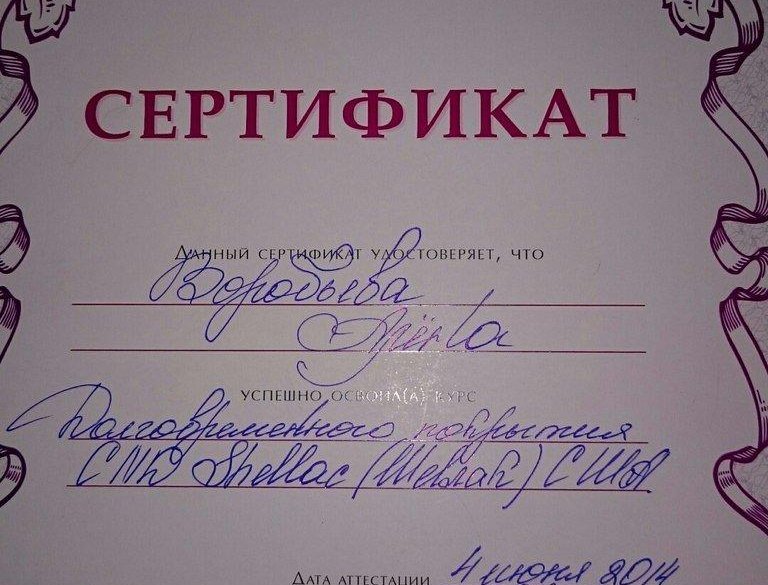 СЕРТИФИКАТ
Данный сертификат удостоверяет, что
Воробьева
Алёна
успешно освоил(а) курс
Долговременного покрытия
CND Shellac (Шеллак) США
Дата аттестации 4 июня 2014